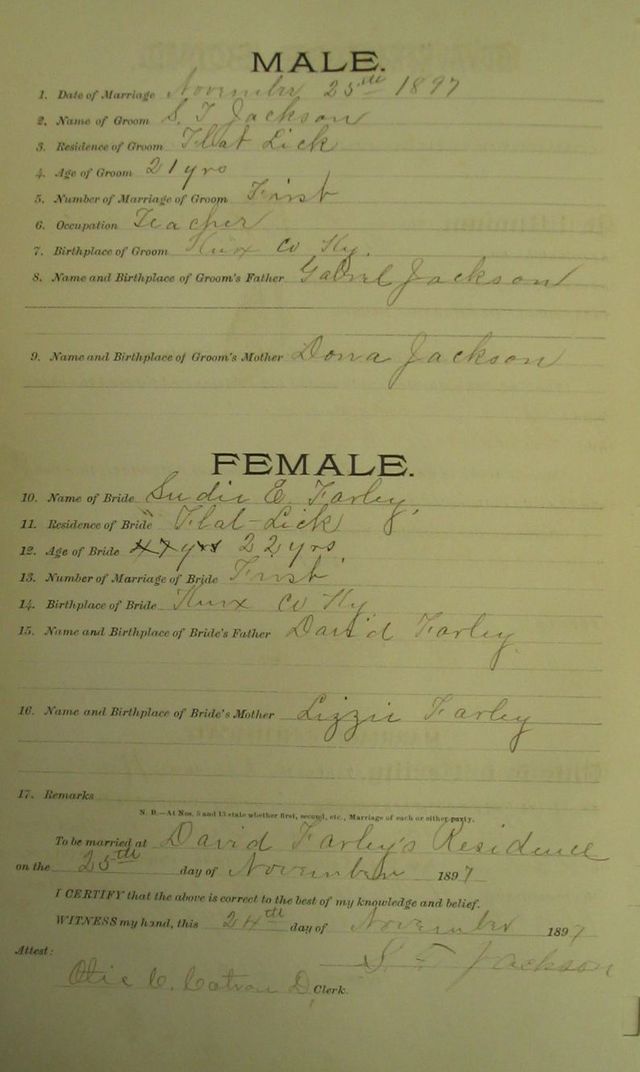 MALE.
1. Date of Marriage November 25th 1897
2. Name of Groom S. T. Jackson
3. Residence of Groom Flat Lick
4. Age of Groom 21 yrs
5. Number of Marriage of Groom First
6. Occupation Teacher
7. Birthplace of Groom Knox Co Ky.
8. Name and Birthplace of Groom's Father Gabriel Jackson
9. Name and Birthplace of Groom's Mother Dona Jackson
FEMALE.
10. Name of Bride Sudie E. Farley,
11. Residence of Bride Flat-Lick
12. Age of Bride yrs 22 yrs.
13. Number of Marriage of Bride First
14. Birthplace of Bride Knox Co Ky.
15. Name and Birthplace of Bride's Father David Farley.
16. Name and Birthplace of Bride's Mother Lizzie Farley
17. Remarks
N. B.—At Nos. 5 and 13 state whether first, second, etc., Marriage of each or either party.
To be married at David Farley's Residence
on the 25th day of November 1897
I CERTIFY that the above is correct to the best of my knowledge and belief.
WITNESS my hand, this 24th day of November 1897
S. T. Jackson
Attest:
C. Catron D. Clerk.